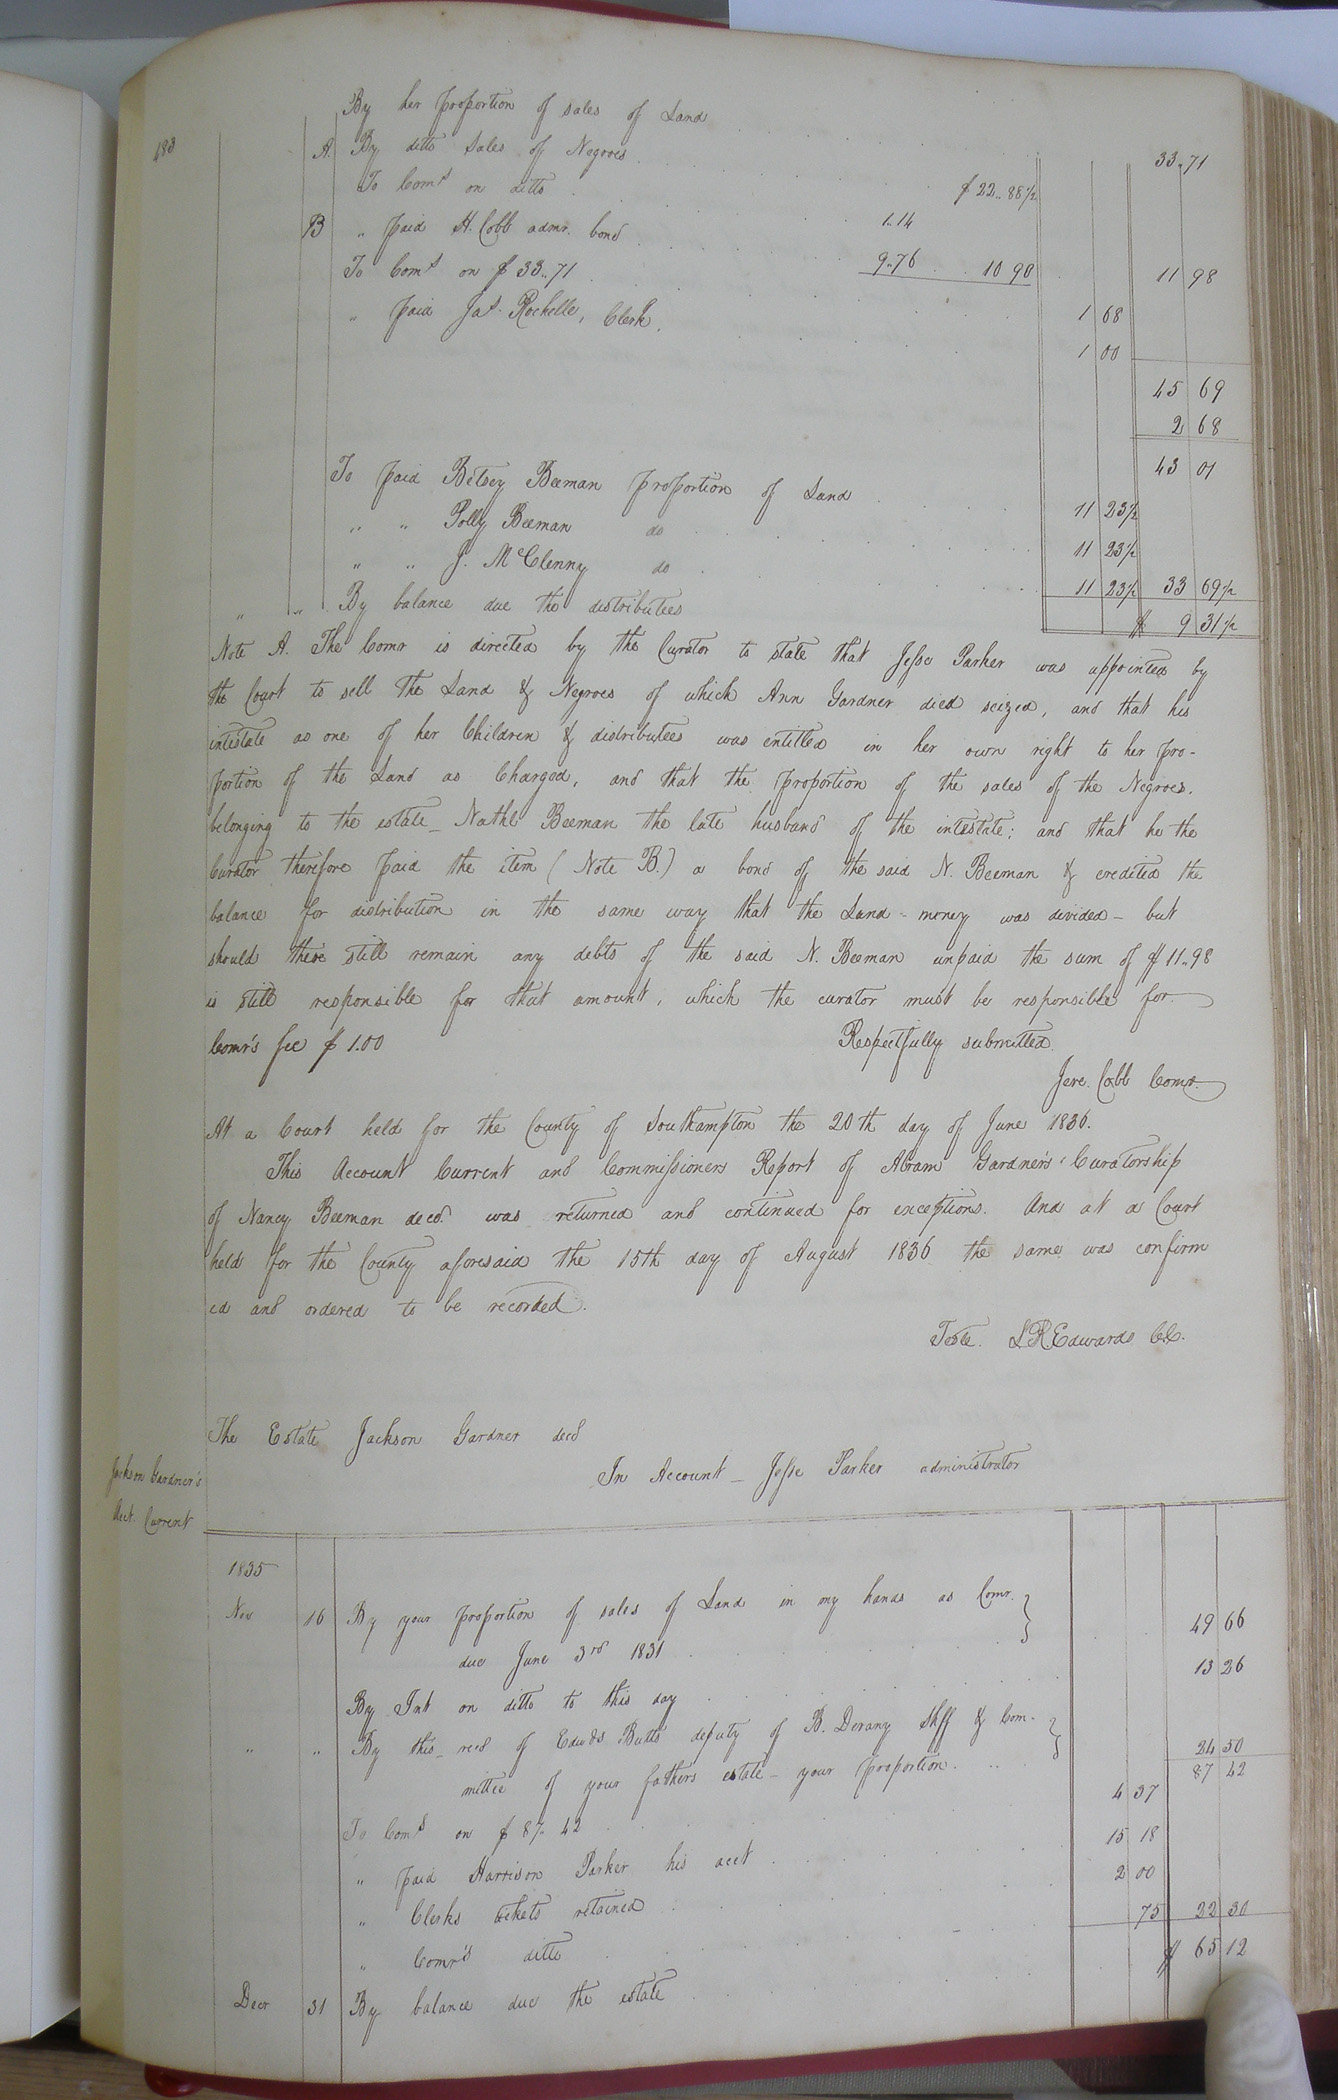 483
By her proportion of sales of Land 33..71
A. By ditto Sales of Negroes $22..88½
To Coms on ditto 1..14
B " paid H. Cobb admr. bond 9..76 10 90 11 98
To Coms on $33..71 1 68
" paid Jas. Rochelle, Clerk. 1 00
45 69
2 68
43 01
To paid Betsey Beeman proportion of Land 11 23½
" " Polly Beeman do 11 23½
" " J. McClenny do 11 23½ 33 69½
" " By balance due the distributees $ 9 31½
Note A. The Comr is directed by the Curator to state that Jesse Parker was appointed by
the Court to sell the Land & Negroes of which Ann Gardner died seized, and that his
intestate as one of her Children & distributees was entitled in her own right to her pro-
portion of the Land as Charged, and that the proportion of the sales of the Negroes.
belonging to the estate_ Nathl Beeman the late husband of the intestate; and that he the
Curator therefore paid the item (Note B.) a bond of the said N. Beeman & credited the
balance for distribution in the same way that the Land-money was divided - but
should there still remain any debts of the said N. Beeman unpaid the sum of $11..98
is still responsible for that amount, which the curator must be responsible for.
Comr's fee $1.00 Respectfully submitted
Jere. Cobb Comr.
At a Court held for the County of Southampton the 20th day of June 1836.
This Account Current and Commissioners Report of Abram Gardner's Curatorship
of Nancy Beeman decd. was returned and continued for exceptions. And at a Court
held for the County aforesaid the 15th day of August 1836 the same was confirm
ed and ordered to be recorded.
Teste. L R Edwards CC.
The Estate Jackson Gardner decd
In Account _ Jesse Parker administrator
Jackson Gardner's
Acct. Current
1835
Nov 16 By your proportion of sales of Land in my hands as Comr.
due June 3rd 1831 49 66
By Int on ditto to this day 13 26
" " By this_ recd of Edwds Butts deputy of B. Devany Shff & Com-
mittee of your fathers estate - your proportion 24 50
87 42
To Coms on $87.42 4 37
" paid Harrison Parker his acct 15 18
" Clerks tickets retained 2 00
" Comr's ditto 75 22 30
Decr 31 By balance due the estate $ 65 12